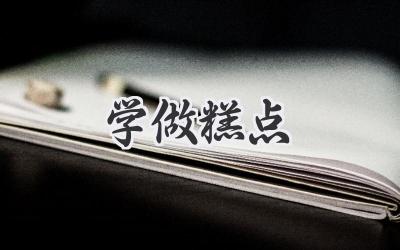 学做糕点